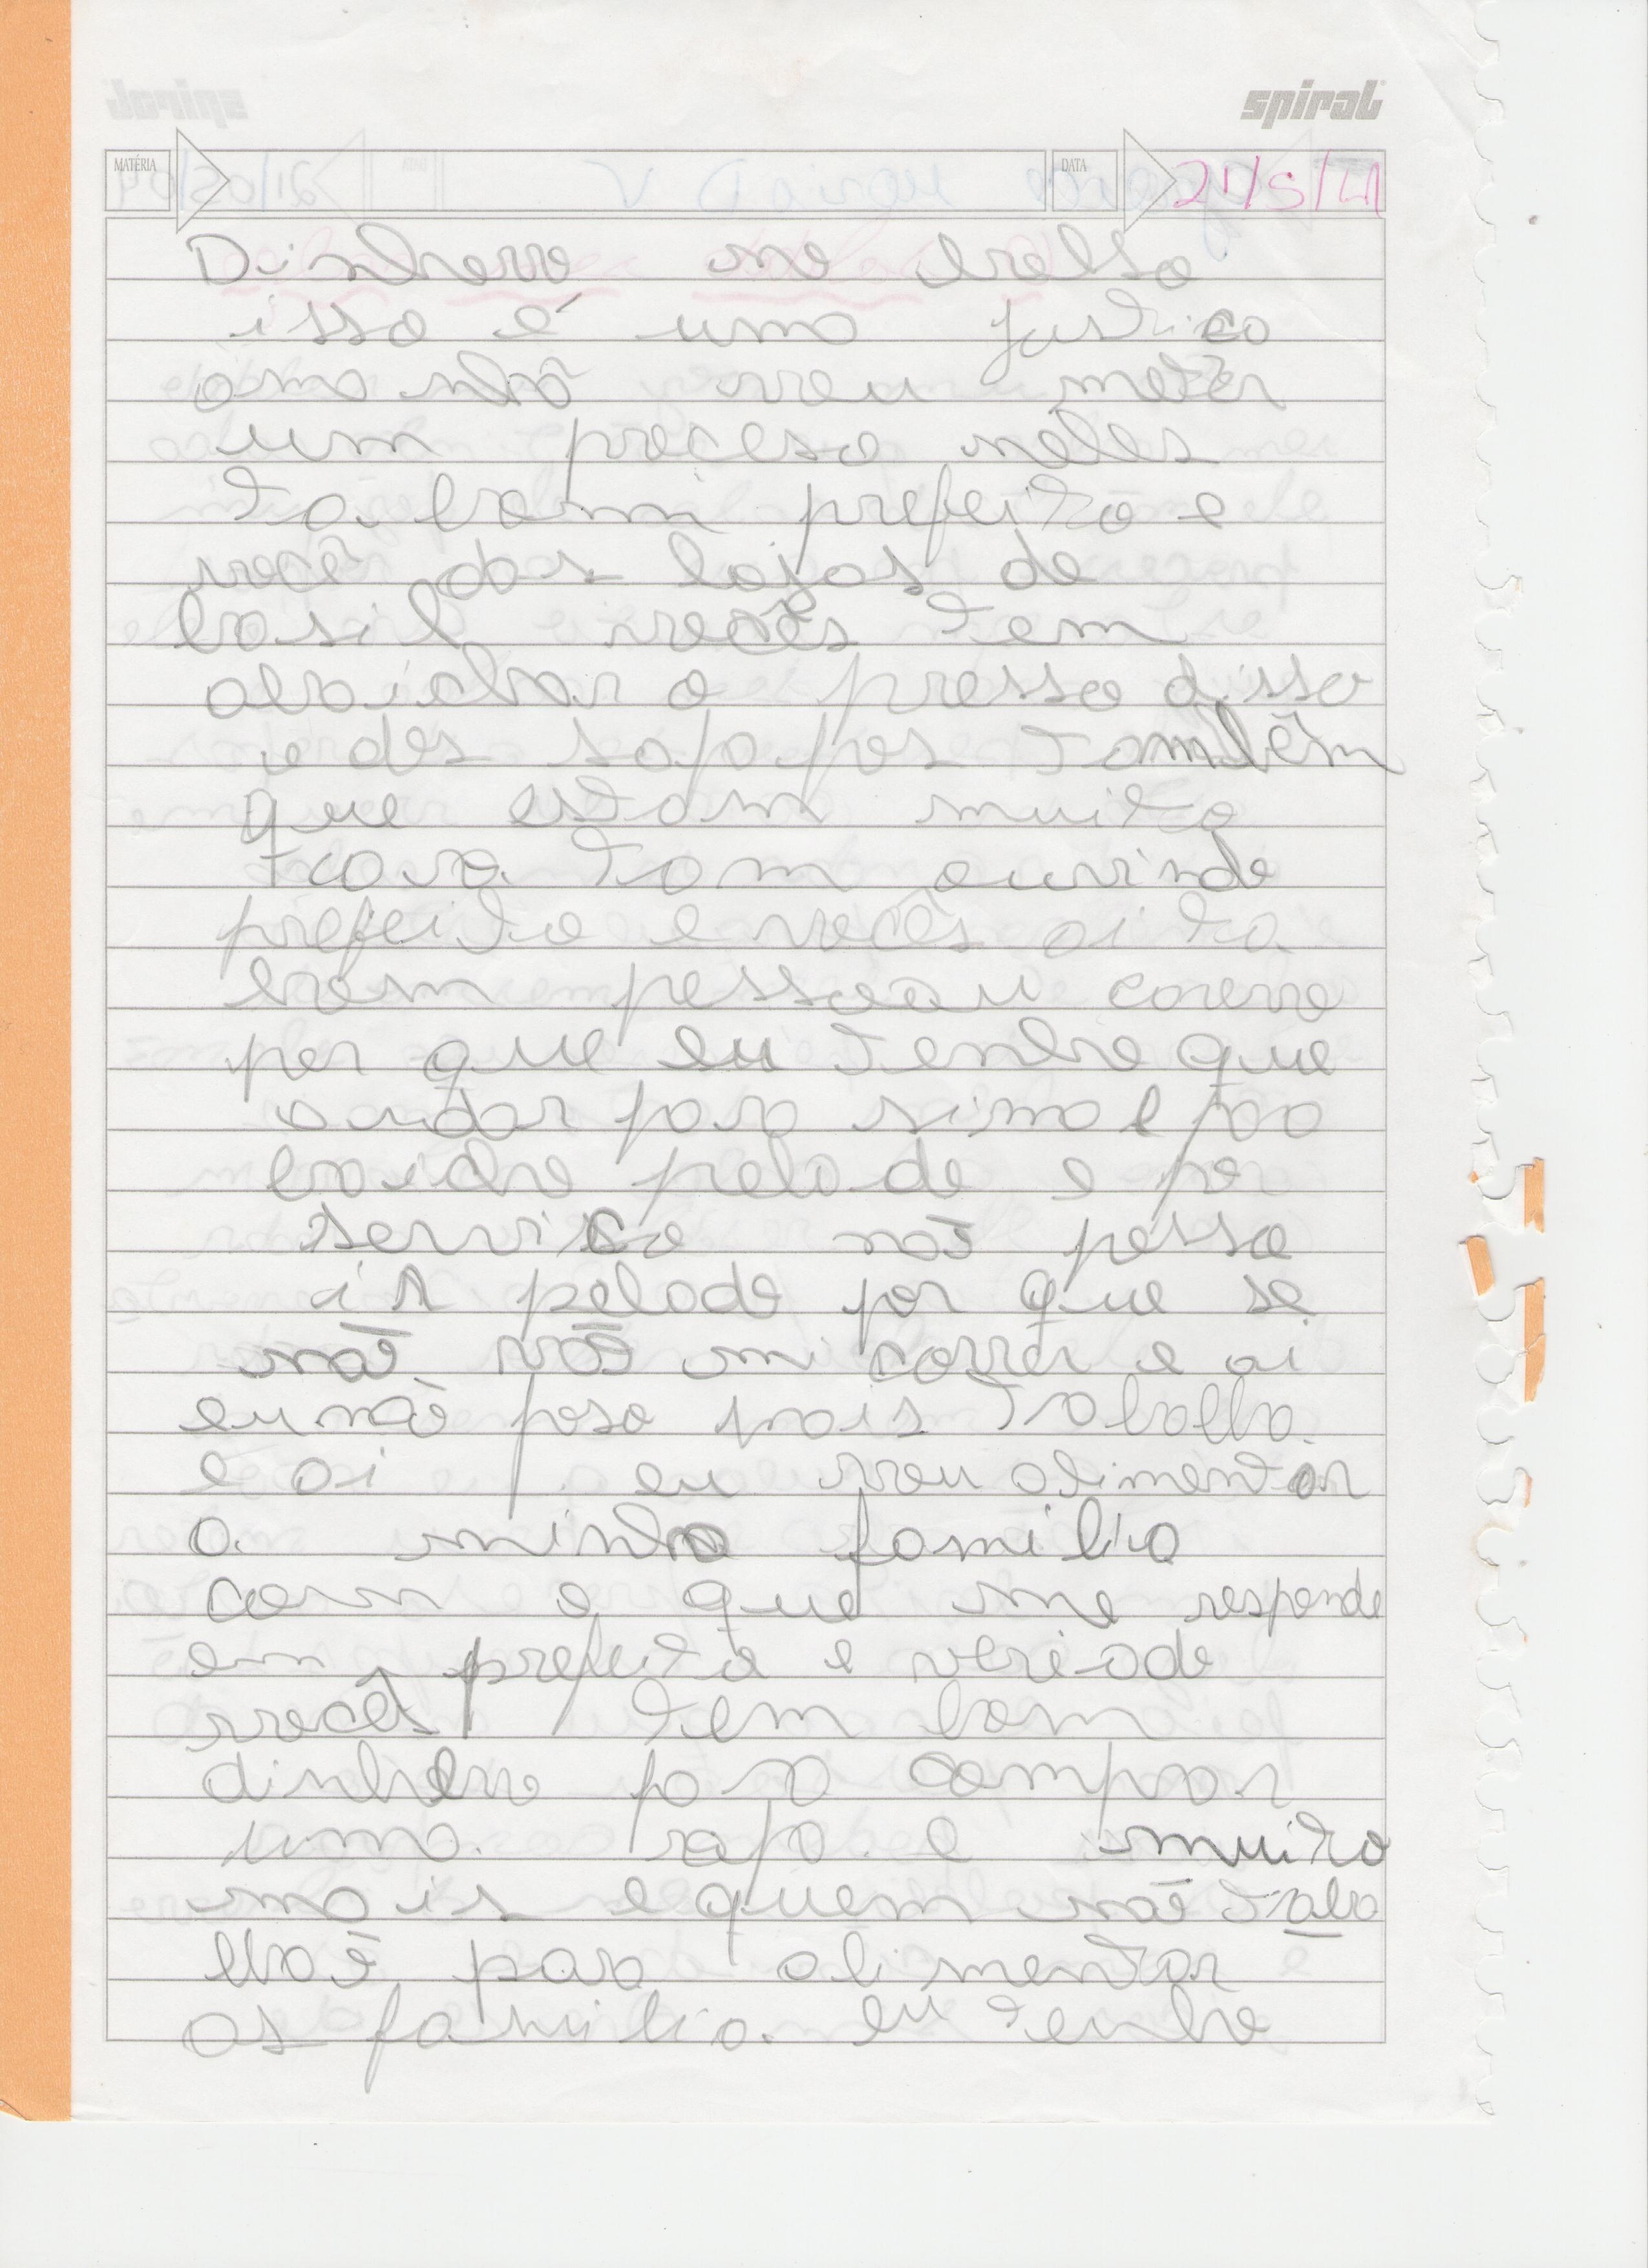 spiral
MATÉRIA DATA 21/5/
Dinherro no bolso
isso é uma justico
amanhã vou metẽr
um proceso neles
ta bom prefeito e
você das lojas de
bosil vocẽs tem
abaichar o presso disso
e dos sapapos tambẽm
que estam muito
cora tam ouvindo
prefeito e vocẽs ai ta
bom pessoau corerro
por que eu tenho que
andar para sima e pao
baicho pelado e por
serviso não posso
ir pelado por que se
não vão mi correr e ai
eu não poso mais trabalha
e ai eu vou alimentar
a minha familia
com o que me responde
em prefeito e veriade
vocês tem bom
dinherro para comprar
uma rapa e muito
mais e quem não traba
lha é para alimentar
as familia. eu tenho